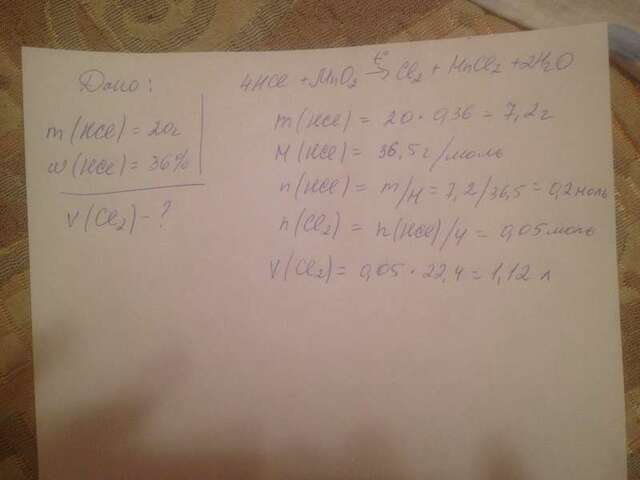 Дано:
m(HCl) = 20г
w(HCl) = 36%
V(Cl₂) - ?
4HCl + MnO₂ →t Cl₂ + MnCl₂ + 2H₂O
m(HCl) = 20 · 0,36 = 7,2г
M(HCl) = 36,5 г/моль
n(HCl) = m/M = 7,2/36,5 = 0,2 моль
n(Cl₂) = n(HCl)/4 = 0,05 моль
V(Cl₂) = 0,05 · 22,4 = 1,12 л